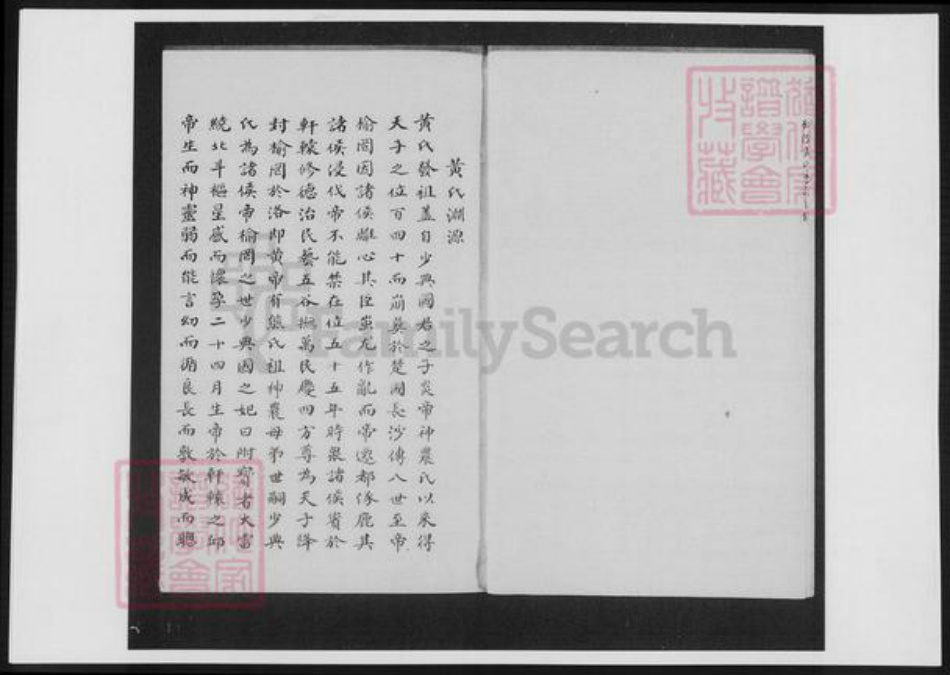 黃氏淵源
黃氏發祖蓋自少典國君之子炎帝神農氏以來得
天子之位百四十而崩葬於楚國長沙傳八世至帝
榆罔因諸侯離心其臣蚩尤作亂而帝遜都涿鹿其
諸侯浸伐帝不能禁在位五十五年時眾諸侯賓於
軒轅修德治民藝五谷撫萬民慶四方尊為天子降
封榆罔於洛即黃帝有熊氏祖神農母弟世嗣少典
氏為諸侯帝榆罔之世少典國之妃曰附寶者大電
繞北斗樞星感而懷孕二十四月生帝於軒轅之邱
帝生而神靈弱而能言幼而循良長而敦敏成而聰
FamilySearch